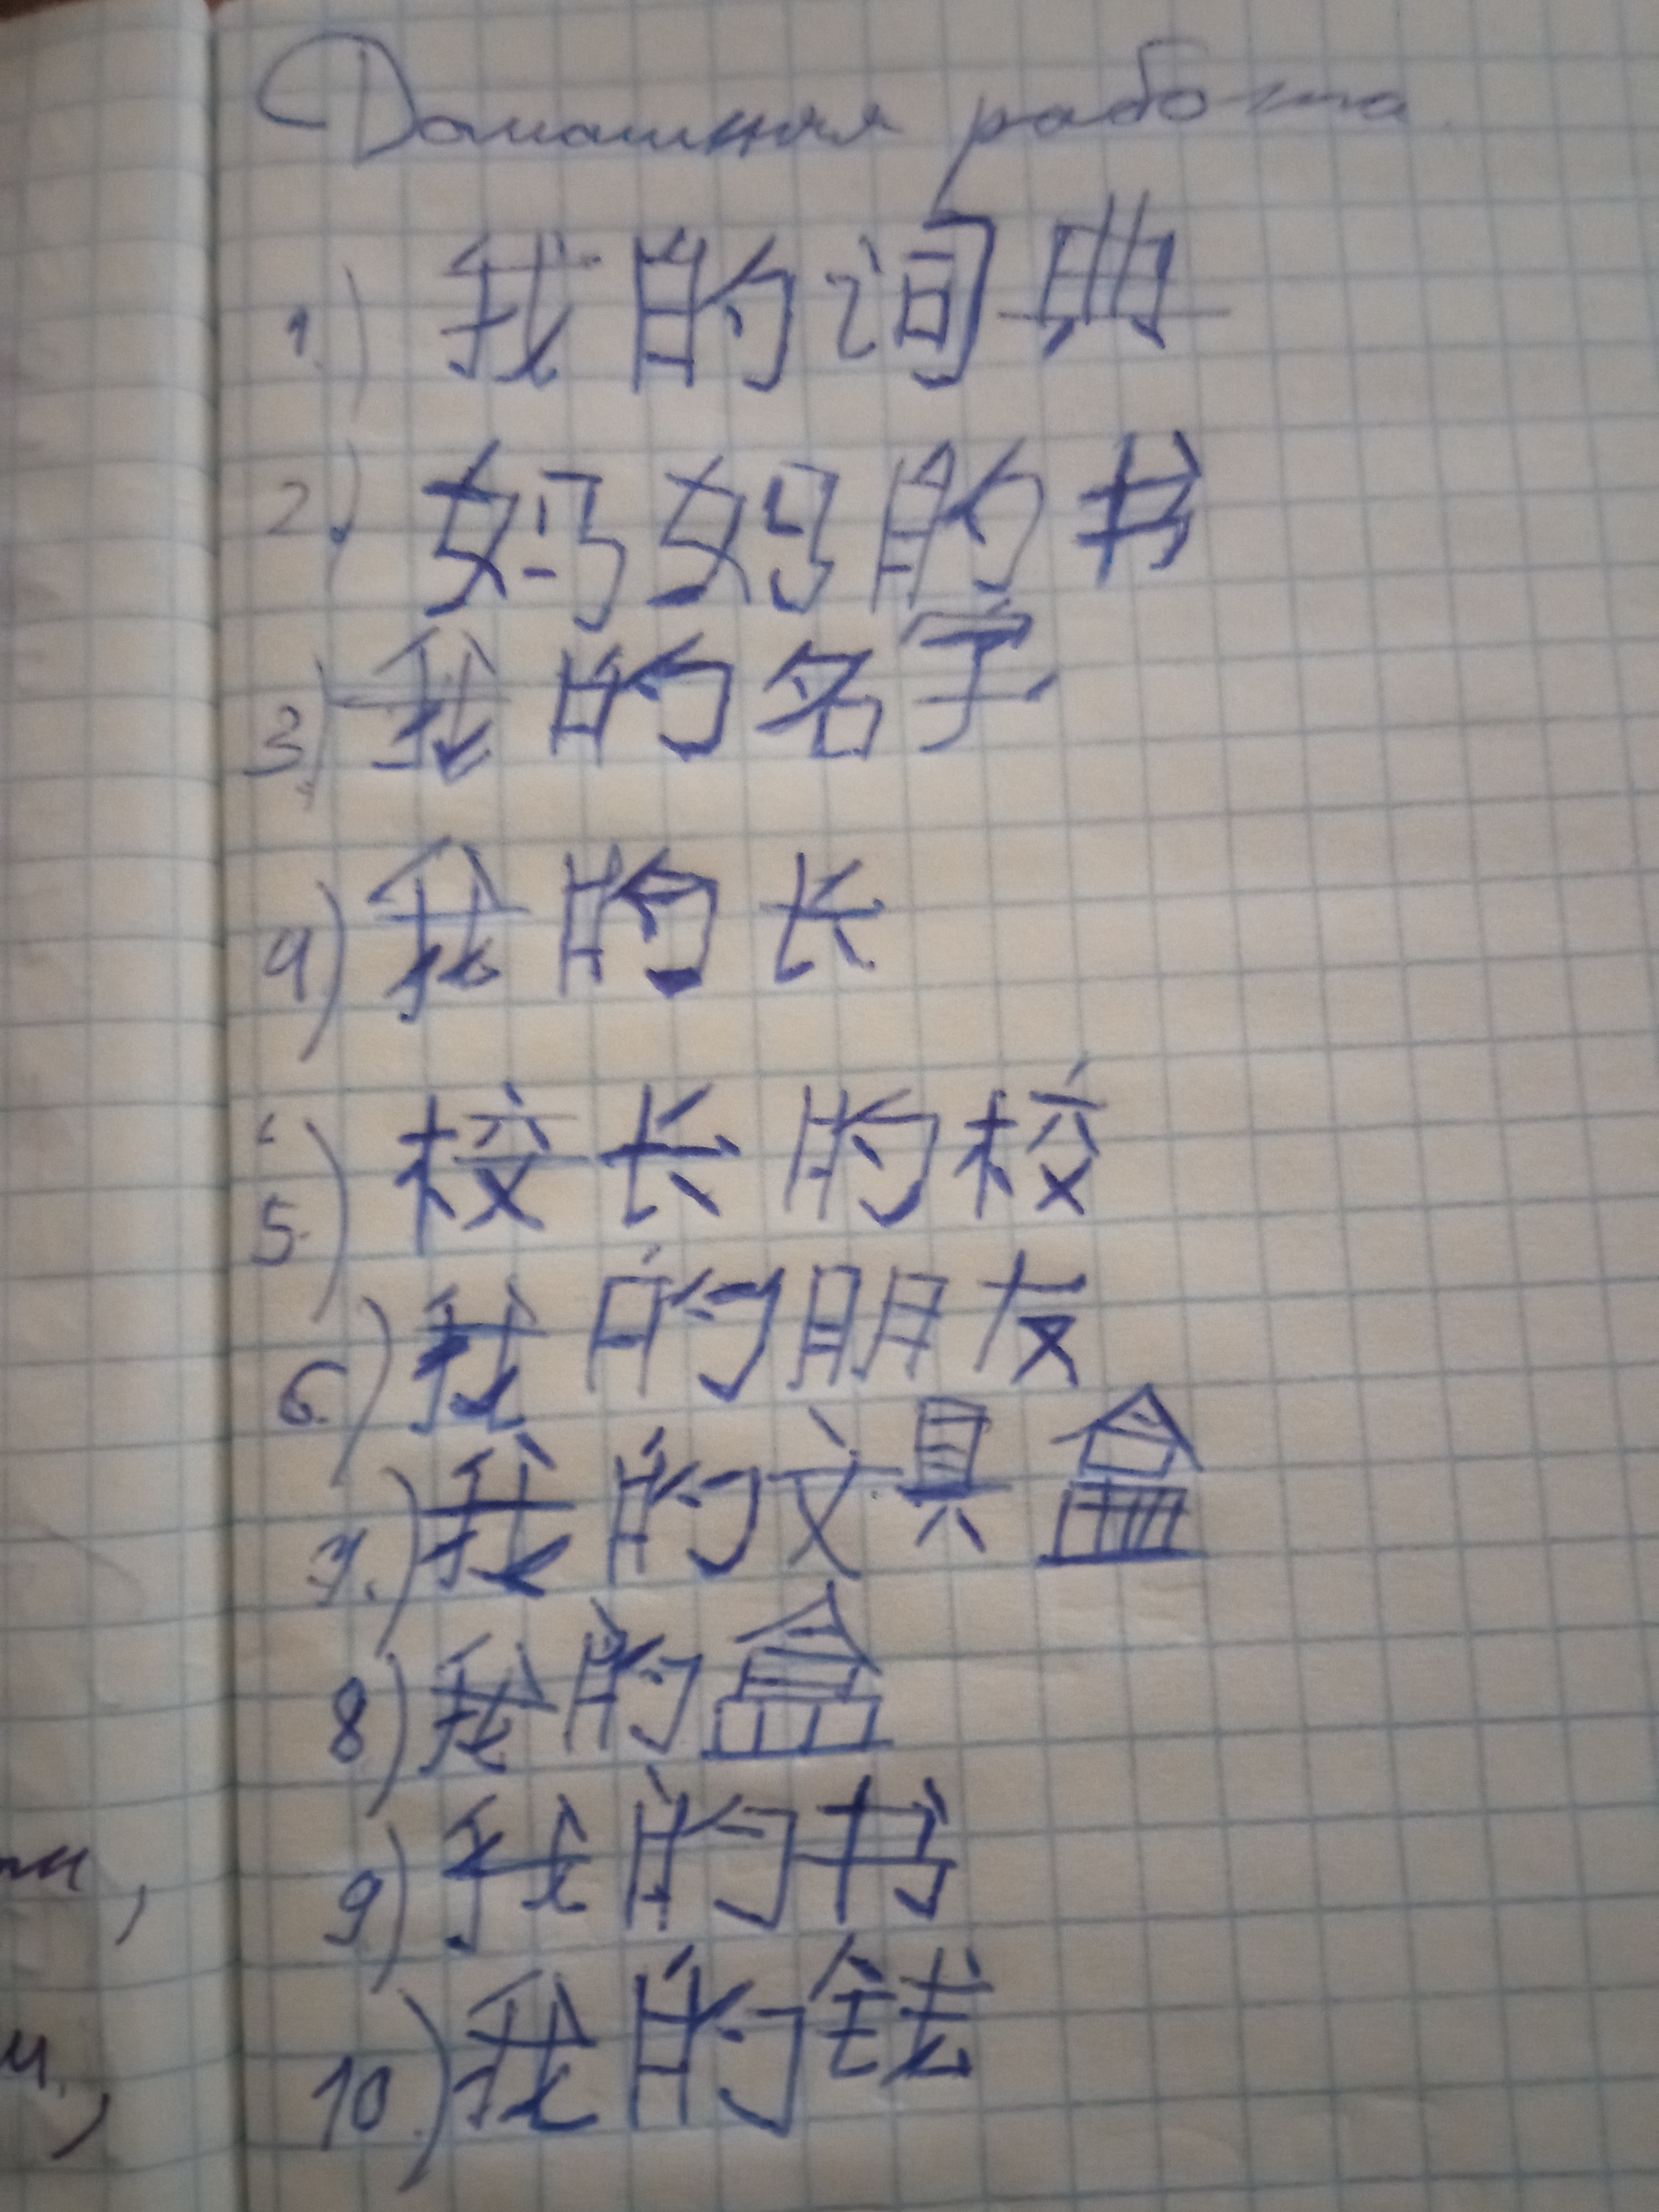 Домашняя работа.
1.) 我的词典
2.) 妈妈的书
3.) 我的名字
4) 我的长
5.) 校长的校
6.) 我的朋友
7.) 我的文具盒
8) 我的盒
9) 我的书
10.) 我的钱